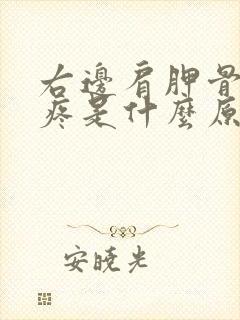 右邊肩胛骨
疼是什麼原
安曉光